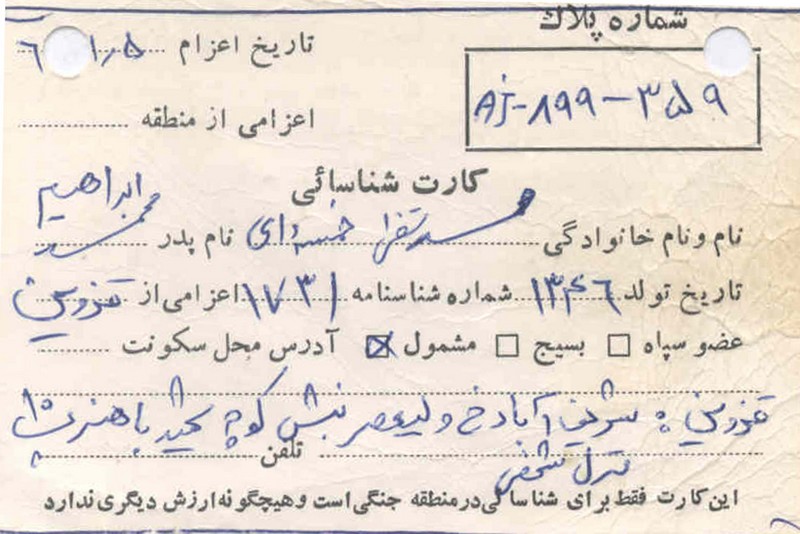 شماره پلاك
AJ-۸۹۹-۳۵۹
تاریخ اعزام
اعزامی از منطقه
كارت شناسائی
نام و نام خانوادگی محمد تقی خمسه‌ای نام پدر محمد ابراهیم
تاریخ تولد ۱۳۴۶ شماره شناسنامه ۱۷۳۱ اعزامی از قزوین
عضو سپاه بسیج مشمول آدرس محل سکونت
قزوین شریف آباد خ ولیعصر نبش کوچه شهید باهنر
منزل شخصی تلفن
این کارت فقط برای شناسائی در منطقه جنگی است و هیچگونه ارزش دیگری ندارد